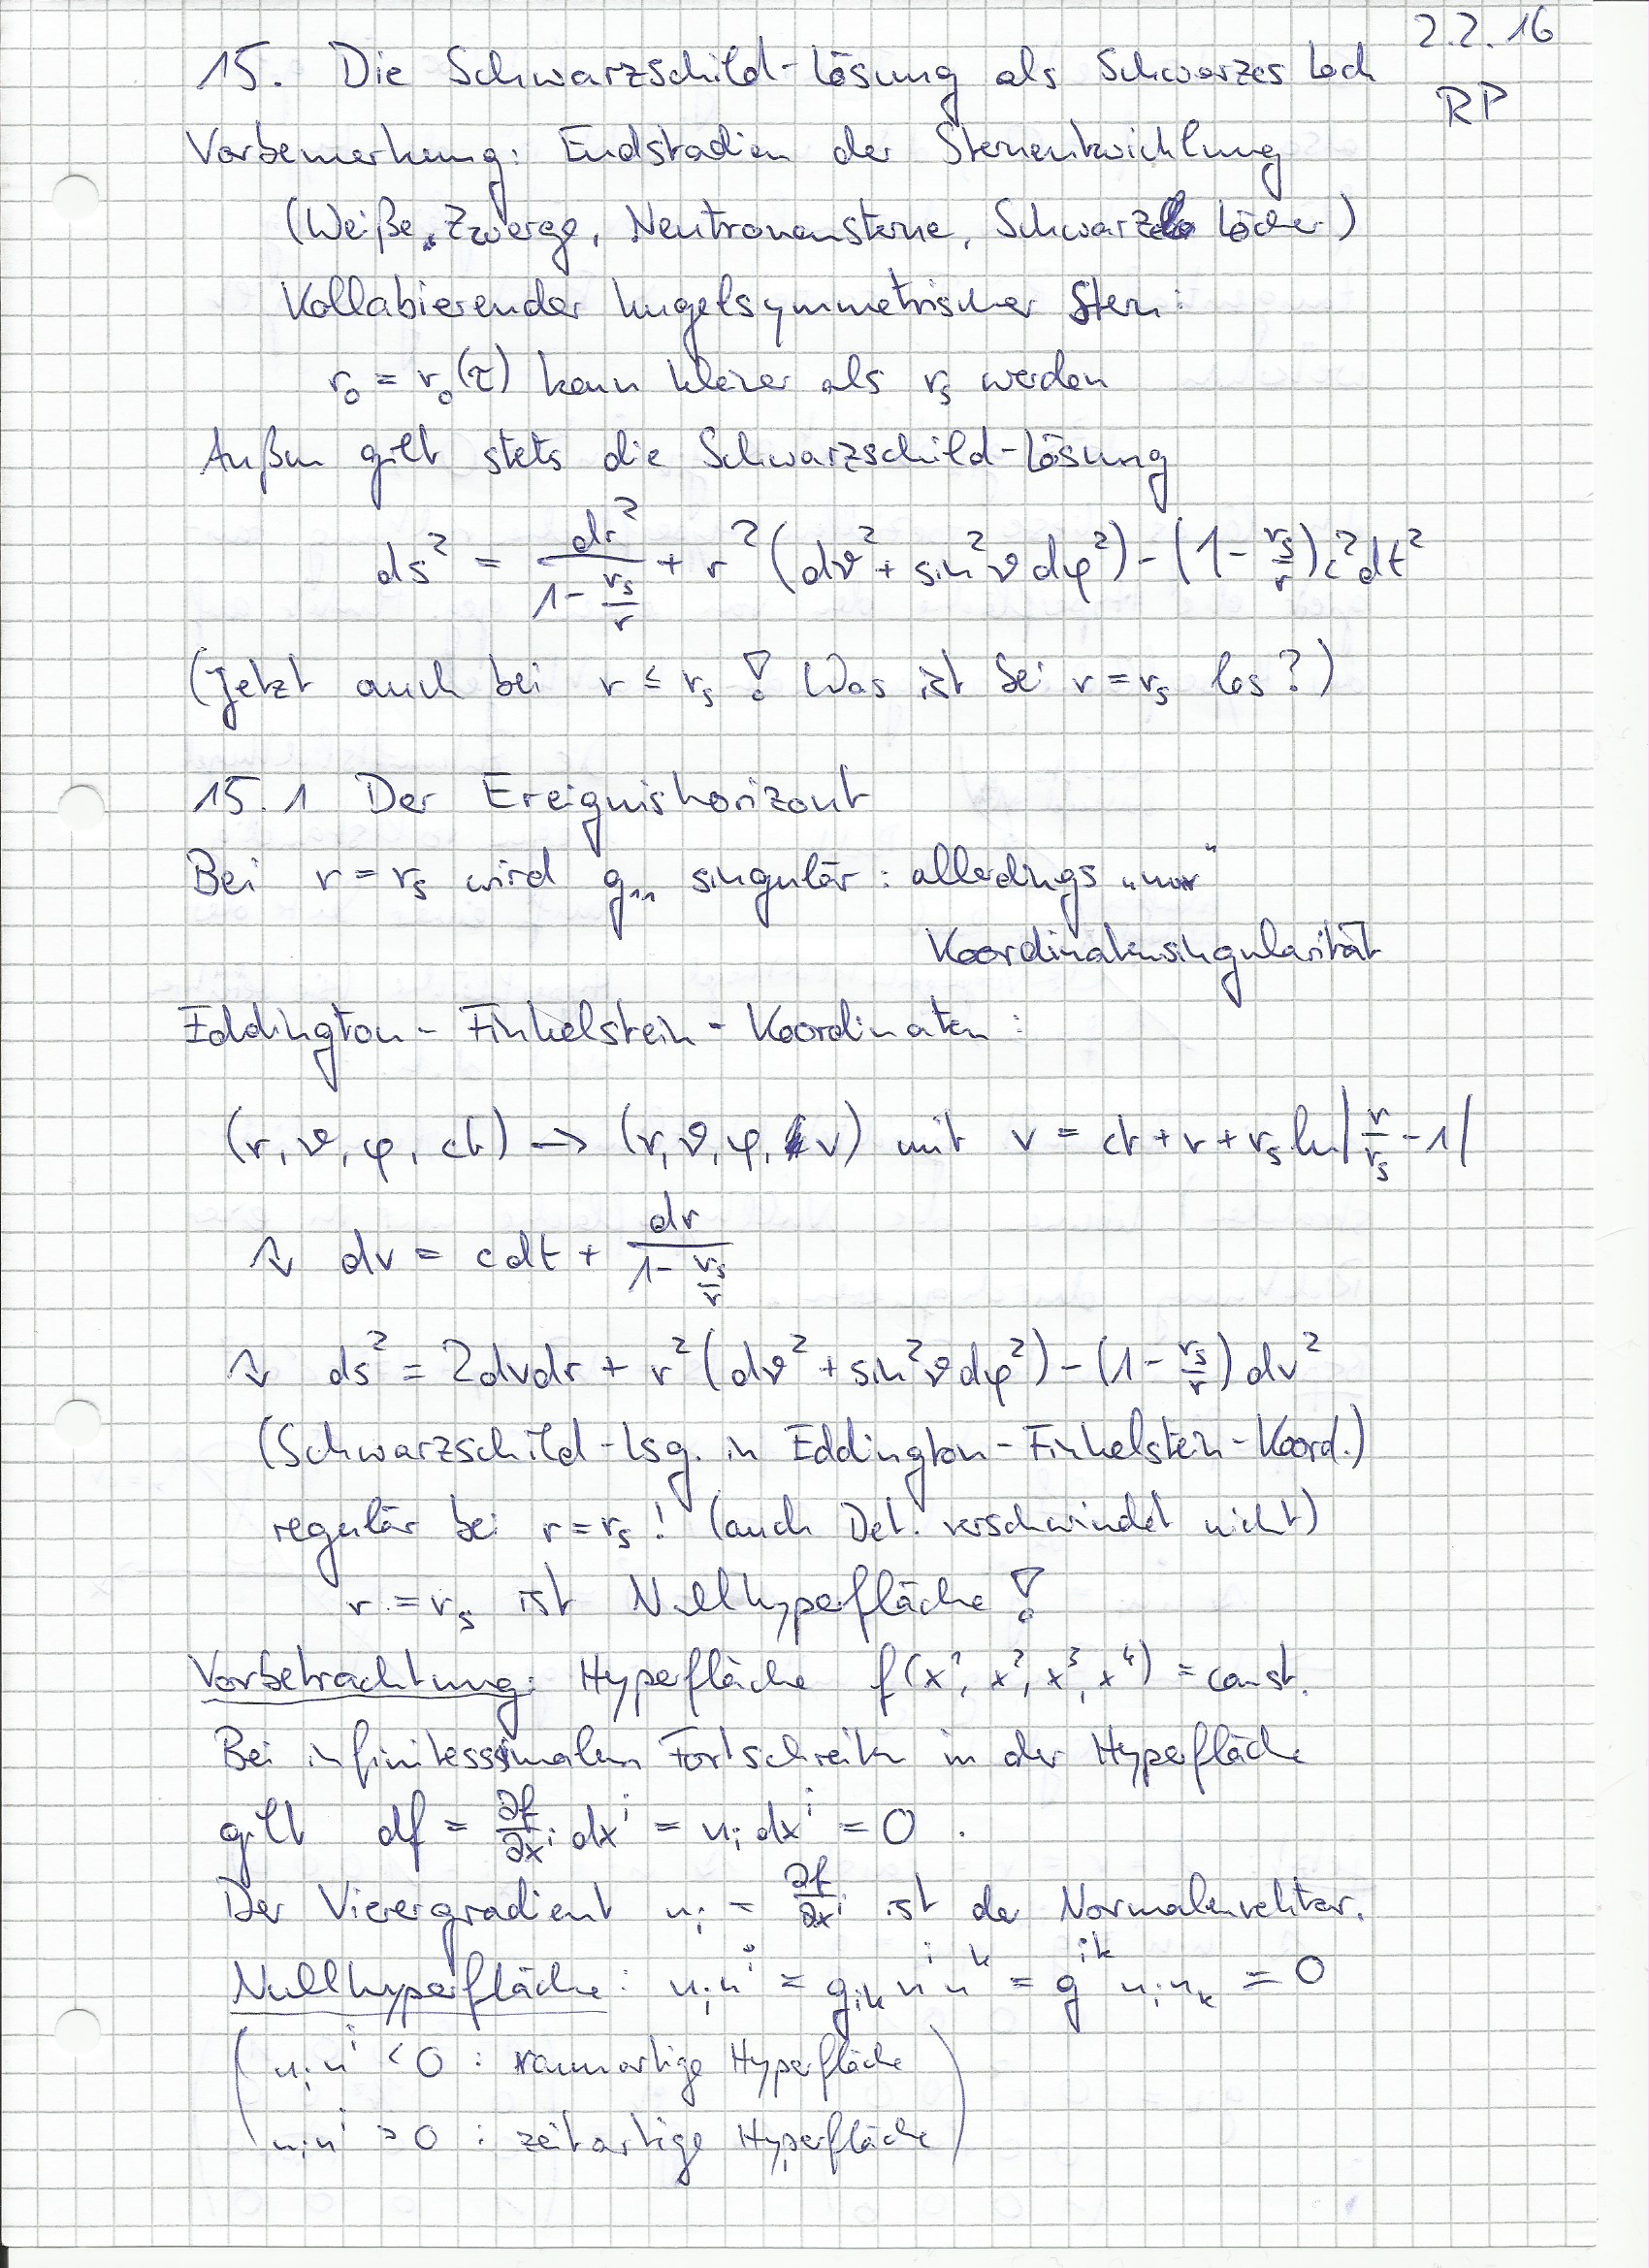 2.2.16
15. Die Schwarzschild-Lösung als Schwarzes Loch
RP
Vorbemerkung: Endstadien der Sternentwicklung
(Weiße Zwerge, Neutronensterne, Schwarze Löcher)
Kollabierender kugelsymmetrischer Stern:
r₀ = r₀(τ) kann kleiner als r_s werden
Außen gilt stets die Schwarzschild-Lösung
ds² = dr²/(1 - r_s/r) + r²(dϑ² + sin²ϑ dφ²) - (1 - r_s/r)c²dt²
(Jetzt auch bei r ≤ r_s ! Was ist bei r = r_s los?)
15.1 Der Ereignishorizont
Bei r = r_s wird g₁₁ singulär: allerdings „nur“
Koordinatensingularität
Eddington-Finkelstein-Koordinaten:
(r, ϑ, φ, ct) → (r, ϑ, φ, v) mit v = ct + r + r_s ln|r/r_s - 1|
↷ dv = cdt + dr/(1 - r_s/r)
↷ ds² = 2dvdr + r²(dϑ² + sin²ϑ dφ²) - (1 - r_s/r)dv²
(Schwarzschild-Lsg. in Eddington-Finkelstein-Koord.)
regulär bei r = r_s! (auch Det. verschwindet nicht)
r = r_s ist Nullhyperfläche!
Vorbetrachtung: Hyperfläche f(x¹, x², x³, x⁴) = const.
Bei infinitessimalem Fortschreiten in der Hyperfläche
gilt df = ∂f/∂xⁱ dxⁱ = n_i dxⁱ = 0.
Der Vierergradient n_i = ∂f/∂xⁱ ist der Normalenvektor.
Nullhyperfläche: n_i nⁱ = g_ik nⁱ nᵏ = gⁱᵏ n_i n_k = 0
(n_i nⁱ < 0 : raumartige Hyperfläche
n_i nⁱ > 0 : zeitartige Hyperfläche)